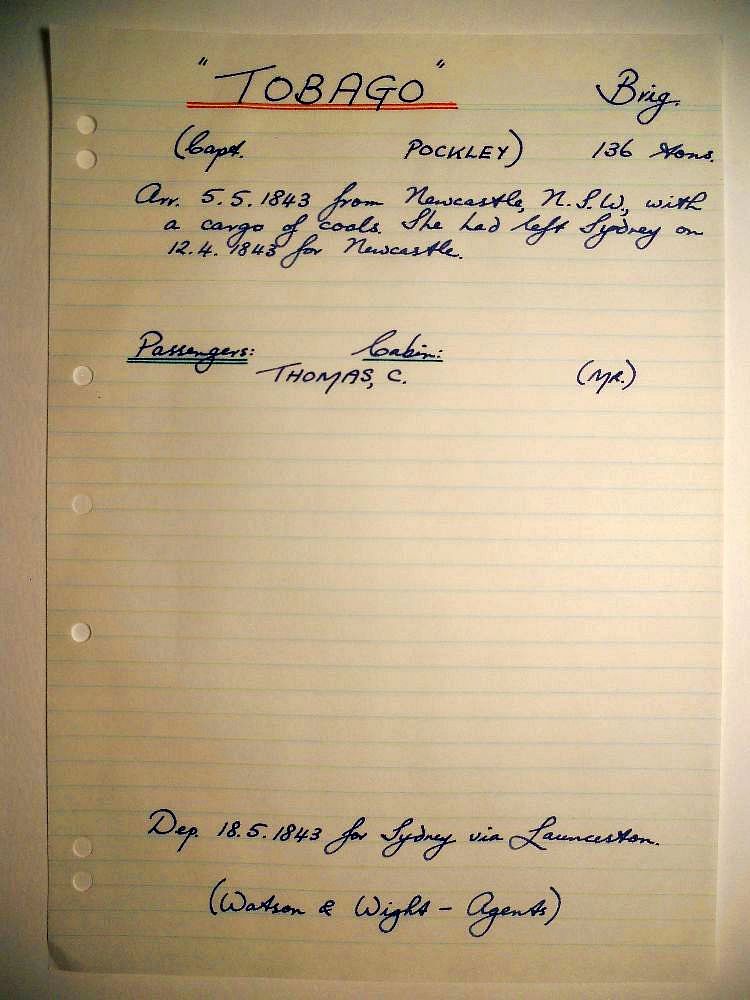 "TOBAGO" Brig.
(Capt. POCKLEY) 136 tons.
Arr. 5.5.1843 from Newcastle, N.S.W., with
a cargo of coals. She had left Sydney on
12.4.1843 for Newcastle.
Passengers: Cabin:
THOMAS, C. (MR.)
Dep. 18.5.1843 for Sydney via Launceston.
(Watson & Wight - Agents)